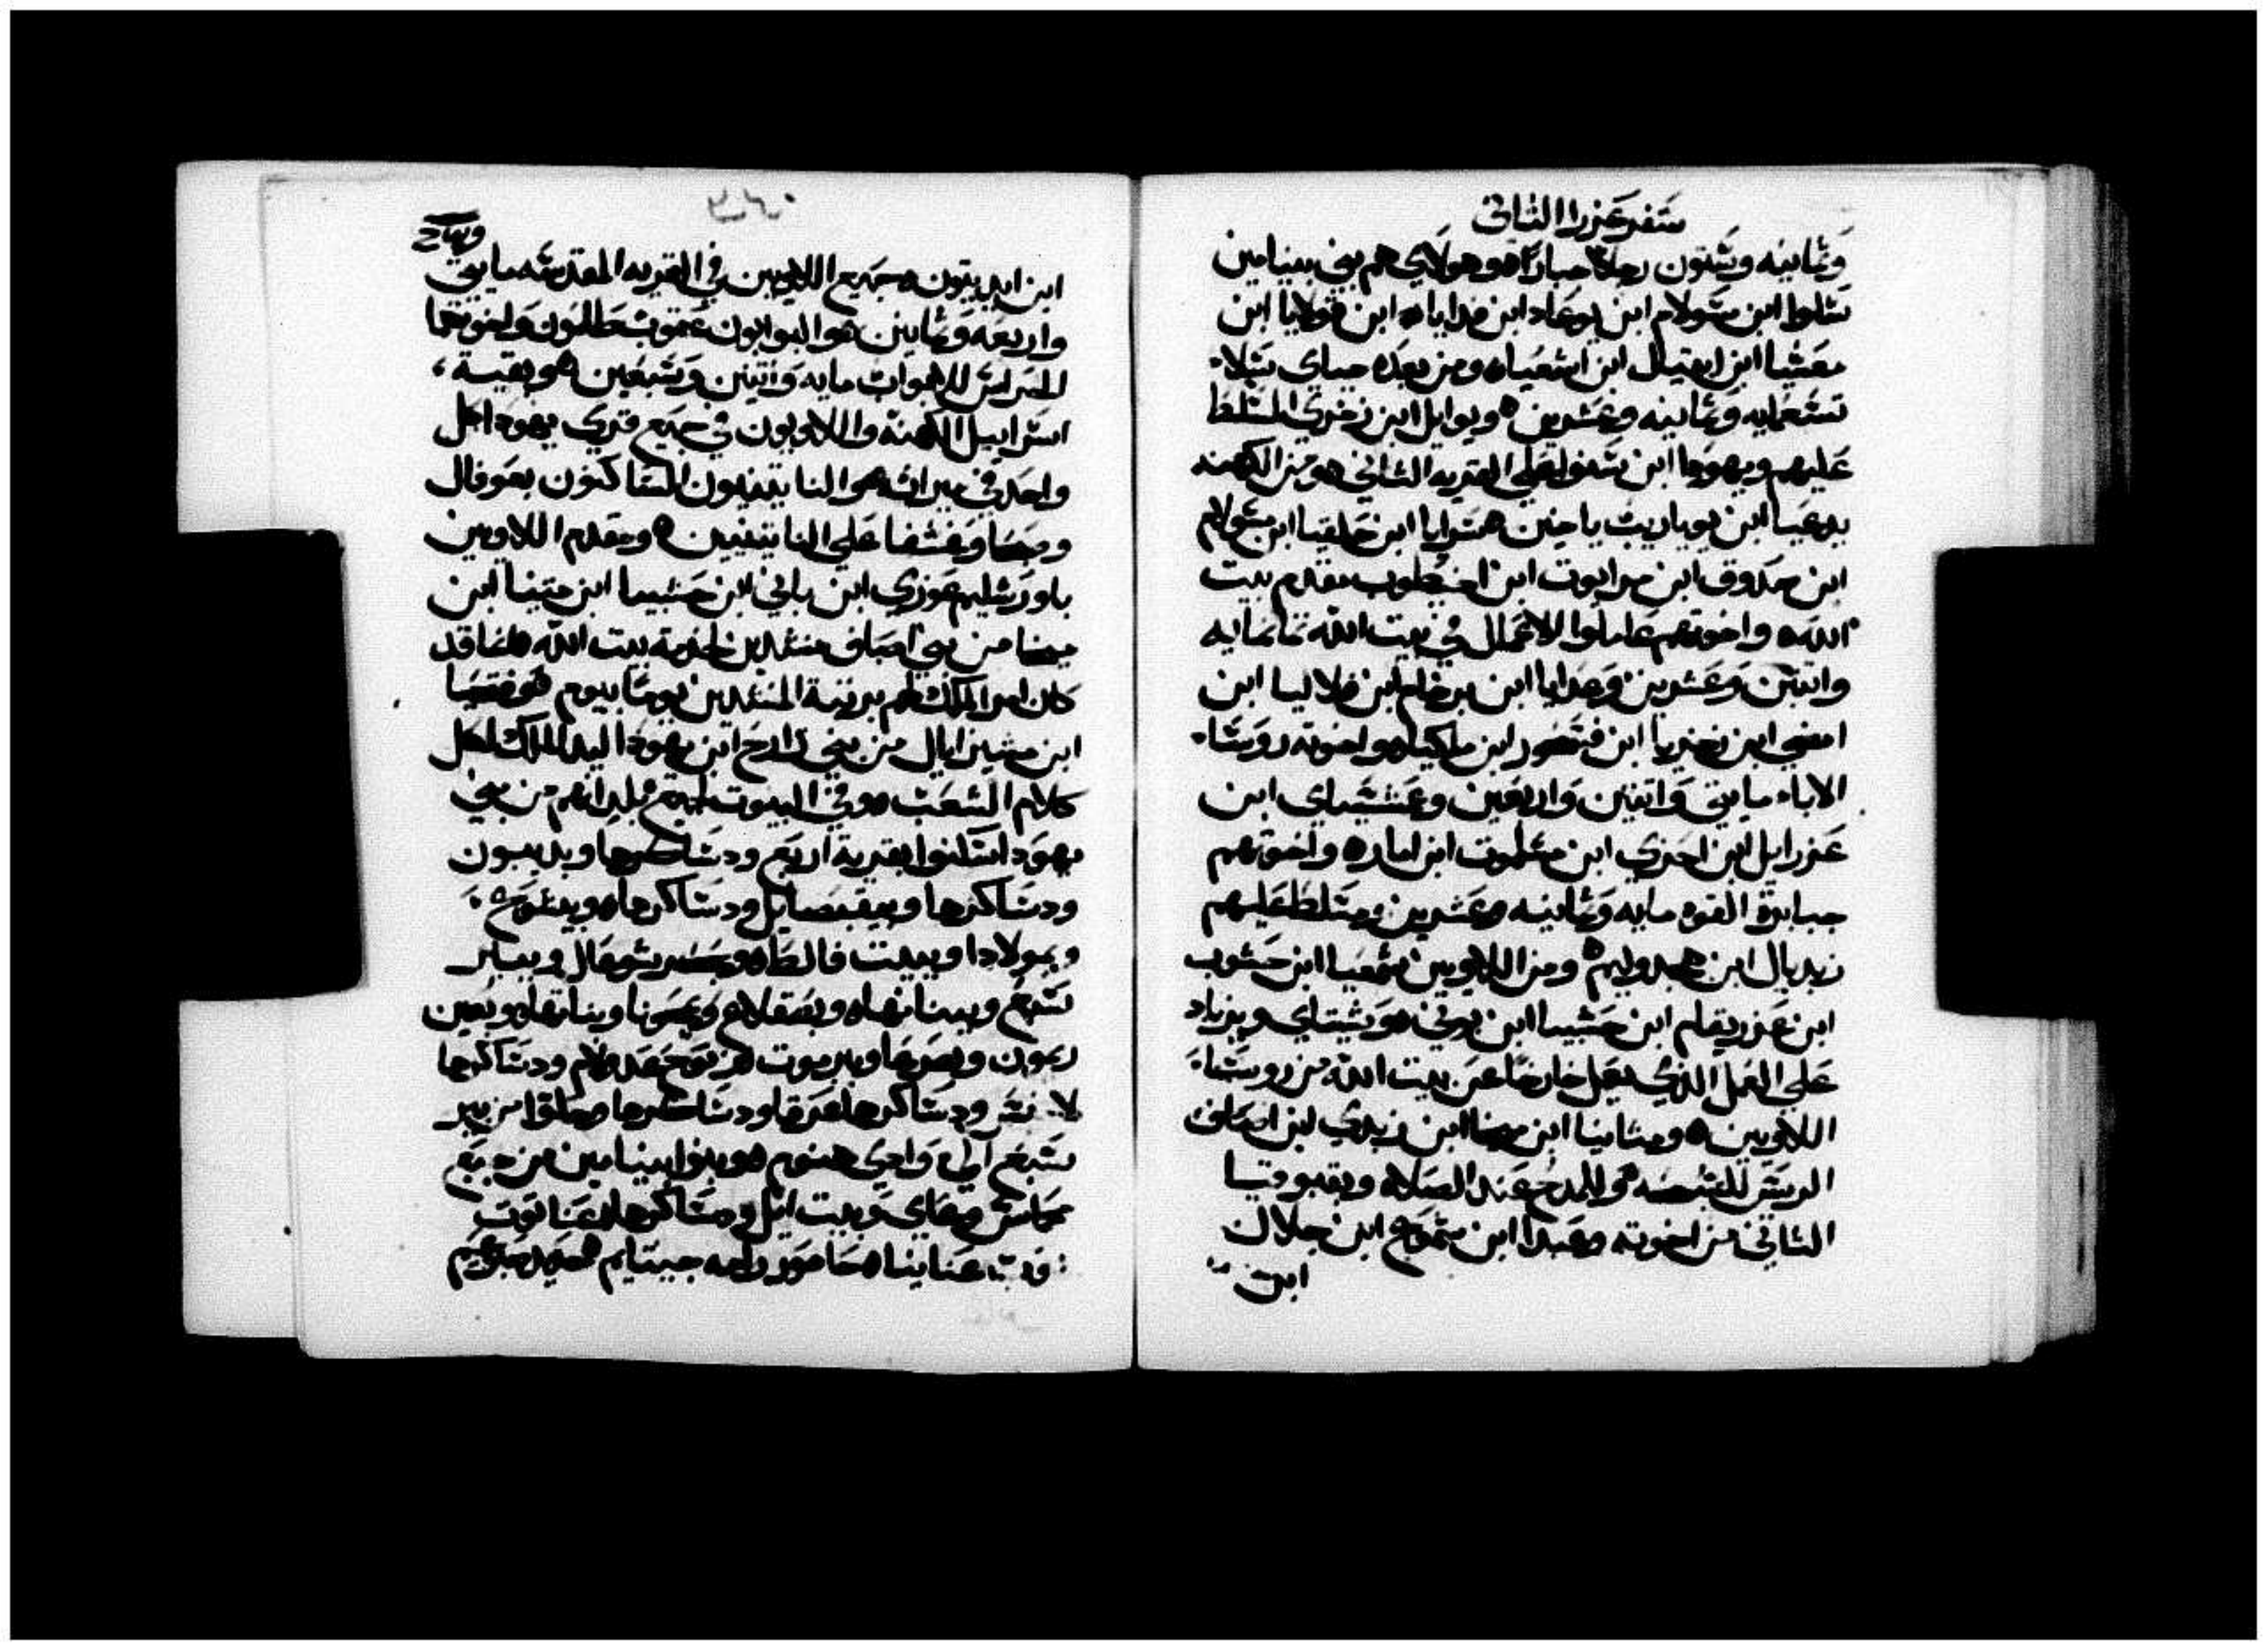 سفر عزرا الثاني
وثمانيه وستون رجلا جبارا وهولاي هم بني بنيامين
سلوا ابن مسولام ابن يوعاد ابن فدايا ابن قولايا ابن
معشيا ابن ايتيال ابن اشعيا ومن بعده جباي سلا
تسعمايه وثمانيه وعشرين ويوايل ابن زخري المسلط
عليهم ويهودا ابن سنوا علي القريه الثاني ومن الكهنه
يدعيا ابن يوياريب ياخين سرايا ابن حلقيا ابن مسولام
ابن صدوق ابن مرايوت ابن اخيطوب مقدم بيت
الله واخوتهم عاملوا الاعمال في بيت الله ثمانمايه
واتنين وعشرين وعدايا ابن يرخام ابن فلاليا ابن
امصي ابن زخريا ابن فسحور ابن ملكيا واخوته روسا
الاباء مايتي واتنين واربعين وعشساي ابن
عزرايل ابن احزي ابن مشلموت ابن اماره واخوتهم
جبابرة القوه مايه وثمانيه وعشرين ومسلط عليهم
زبديال ابن هجدوليم ومن اللاويين شمعيا ابن حشوب
ابن عزريقام ابن حشبيا ابن بوني وشبتاي ويزباد
علي العمل الذي يعمل خارجا عن بيت الله من روسا
اللاويين ومتانيا ابن ميخا ابن زبدي ابن اصاف
الريس للتسبحه وللمدح عند الصلاه وبقبوقيا
الثاني من اخوته وعبدا ابن شموع ابن جلال
ابن
ابن ايديتون وجميع اللاويين في القريه المقدسه مايتي
واربعه وثمانين والبوابون عقوب طلمون واخوتهما
الحراس للابواب مايه واتنين وسبعين وبقية
اسراييل الكهنة واللاويون في جميع قري يهودا كل
واحد في ميراثه والناتينيون الساكنون بعوفال
وصحا وغشفا علي الناتينيين ومقدم اللاويين
باورشليم عوزي ابن باني ابن حشبيا ابن متنيا ابن
ميخا من بني اصاف منشدين لخدمة بيت الله كما قد
كان امر الملك لهم برتبة المنشدين يوما بيوم وفتحيا
ابن مشيزابال من بني زارح ابن يهودا ليد الملك لكل
كلام الشعب وفي البيوت لجميع بلدانهم من بني
يهودا اسكنوا بقرية اربع ودساكرها وبديبون
ودساكرها وبيقبصايل ودساكرها وبيشوع
وبمولادا وببيت فالط وبحصر شوعال وببابر
سبع وببناتها وبصقلاع وبمخونا وبناتها وبعين
ريمون وبصرعا وبيرموت زنوح عدولام ودساكرها
لاخيش ودساكرها عزقا ودساكرها وحلقوا من بير
سبع الي وادي هنوم وبنوا بنيامين من جبع
مخماس وعاي وبيت ايل ودساكرها وعناتوت
ونوب عنانيا حاصور رامه جيتايم حديد صبوعيم